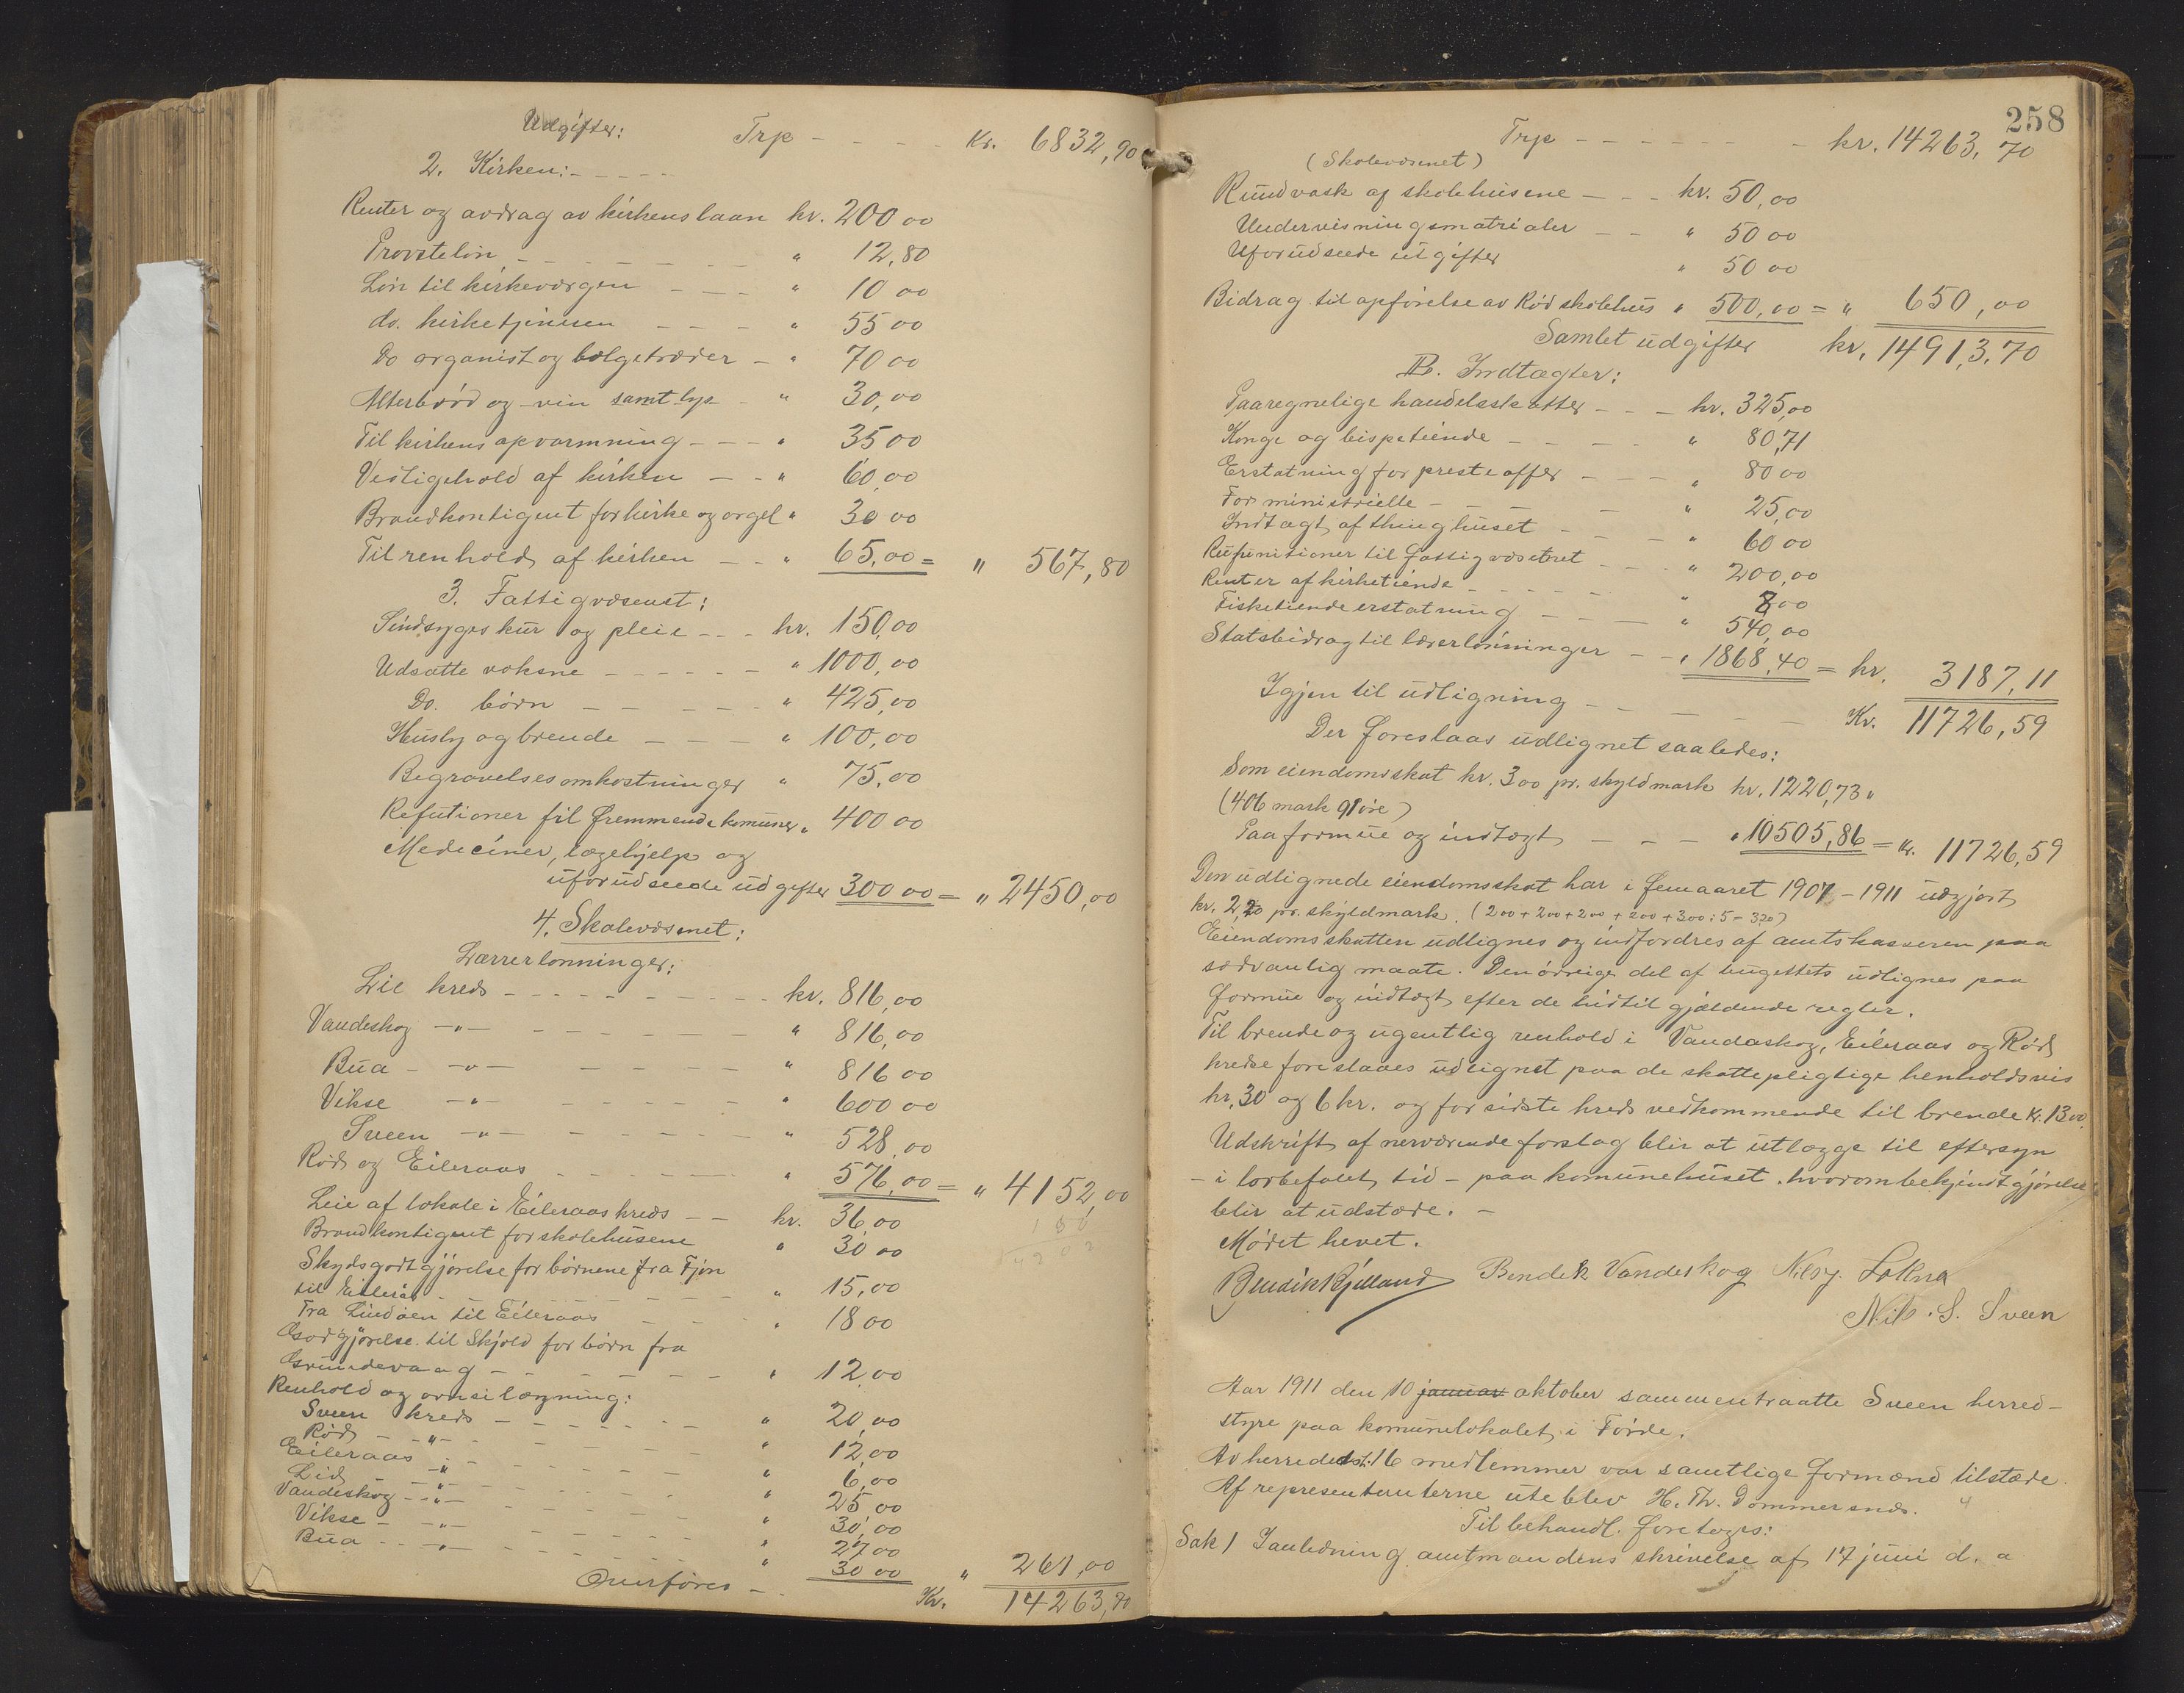 Udgifter: Trp - - - - Kr. 6832,90
2. Kirken: - - - - -
Renter og avdrag av kirkens laan kr. 200 00
Provstelön - - - - - - - " 12,80
Lön til kirkeværgen - - - " 10 00
do. kirketjeneren - - - - " 55 00
Do organist og bælgetræder - " 70 00
Alterbröd og -vin samt lys - " 30,00
Til kirkens opvarmning - - - " 35 00
Vedligehold af kirken - - " 60,00
Brandkontigent for kirke og orgel " 30 00
Til renhold af kirken - - " 65,00 = " 567,80
3. Fattigvæsenet:
Sindsyges kur og pleie - - - kr. 150,00
Udsatte voksne - - - - - " 1000,00
Do. börn - - - - - " 425,00
Husly og brende - - - " 100,00
Begravelsesomkostninger " 75,00
Refutioner til fremmende komuner " 400 00
Mediciner, lægehjelp og
uforudseede udgifter 300 00 = " 2450,00
4. Skolevæsnet:
Lærrerlönninger:
Lie kreds - - - - - - - - - kr. 816,00
Vandeskog -"- - - - - - - " 816,00
Bua - -"- - - - - - " 816 00
Vikse -"- - - - - - " 600 00
Sveen -"- - - - - - " 528,00
Röd og Eileraas - - - - - - " 576,00 = " 4152,00
Leie af lokale i Eileraas kreds - - kr. 36,00
Brandkontigent for skolehusene " 30 00
Skydsgodtgjörelse for börnene fra Fjon
til Eileraas - - - - - - - - " 15,00
Fra Lindöen til Eileraas - - - " 18 00
Godtgjörelse til Skjold for börn fra
Grundevaag - - - - - - - " 12,00
Renhold og ovnsilægning:
Sveen kreds - - - - - - " 20,00
Röd - -"- - - - - - " 12,00
Eileraas -"- - - - - - " 6,00
Lid -"- - - - - - " 25,00
Vandeskog -"- - - - - " 30,00
Vikse - -"- - - - - " 27 00
Bua - - -"- - - - - " 30 00 " 261,00
Overföres - - Kr. 14263,70
258
Trp - - - - - - - kr. 14263,70
(Skolevæsnet)
Rundvask af skolehusene - - - kr. 50,00
Undervisningsmatrialer - - " 50 00
Uforudseede utgifter " 50 00
Bidrag til opförelse av Röd skolehus " 500,00 = " 650,00
Samlet udgifter kr. 14913,70
B. Indtægter:
Paaregnelige handelsskatter - - - kr. 325,00
Konge og bispetiende - - - - " 80,71
Erstatning for presteoffer - - - " 80 00
For ministrielle - - - - " 25,00
Indtægt af thinghuset - - - " 60 00
Refunitioner til fattigvæsenet - - - " 200,00
Renter af kirketiende - - - - - " 8,00
Fisketiendeerstatning - - - " 540,00
Statsbidrag til lærerlönninger - - " 1868,40 = kr. 3187,11
Igjen til udligning - - - - - - Kr. 11726,59
Der foreslaas udlignet saaledes:
Som eiendomsskat kr. 3 00 pr. skyldmark kr. 1220,73 "
(406 mark 91 öre)
Paa formue og indtægt - - - " 10505,86 = kr. 11726,59
Den udlignede eiendomsskat har i femaaret 1907-1911 udgjort
kr. 2,20 pr. skyldmark. (2 00 + 2 00 + 2 00 + 2 00 + 3 00 : 5 = 2 20)
Eiendomsskatten udlignes og indfordres af amtskasseren paa
sedvanlig maate. Den övrige del af bugettets udlignes paa
formue og indtægt efter de hidtil gjældende regler.
Til brende og ugentlig renhold i Vandaskog, Eileraas og Röd
kredse foreslaaes udlignet paa de skattepligtige henholdsvis
kr. 30 og 6 kr. og for sidste kreds vedkommende til brende kr. 13 00.
Udskrift af nerværende forslag blir at utlægge til eftersyn
- i lovbefalet tid - paa komunehuset, hvorom bekjendtgjörelse
blir at udstæde. -
Mödet hevet.
Bendik Kjilland Bendek Vandeskog Nils J. Lokna
Nils S. Sveen
Aar 1911 den 10 januar oktober sammentraatte Sveen herred-
styre paa komunelokalet i Förde.
Av herredets 16 medlemmer var samtlige formænd tilstæde.
Af representanterne uteblev H. Th. Dommersnes.
Til behandl. foretoges:
Sak 1 I anledning amtmandens skrivelse af 17 juni d. a